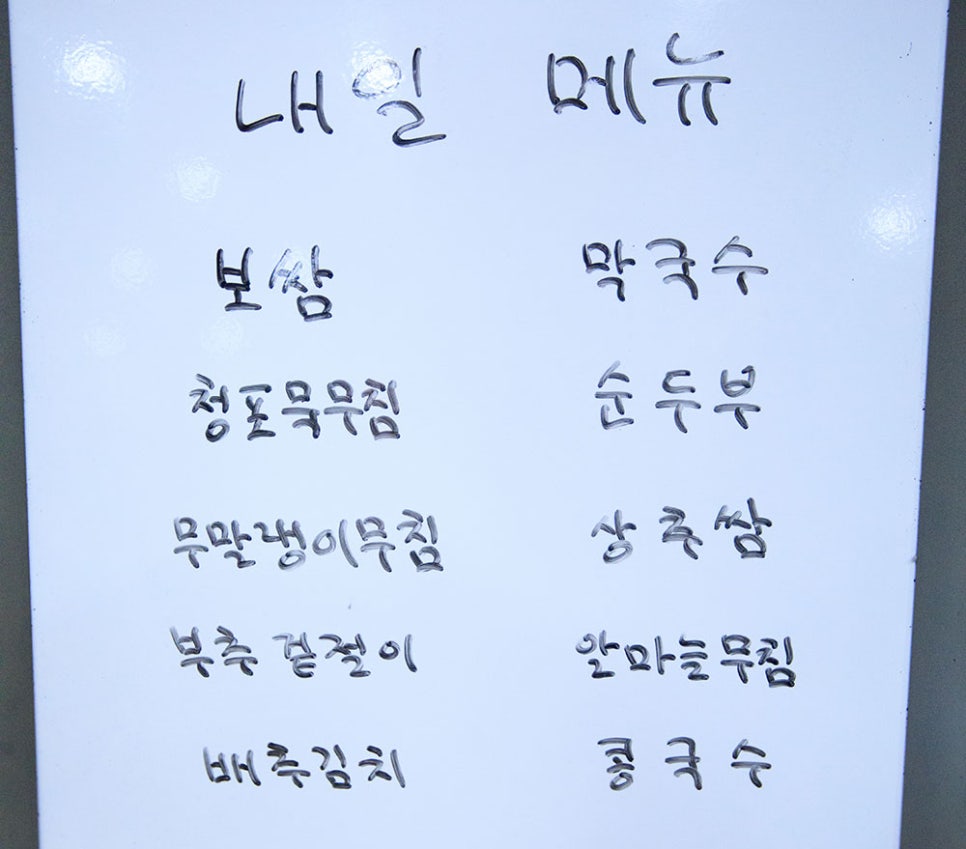 내일 메뉴
보쌈 막국수
청포묵무침 순두부
무말랭이무침 상추쌈
부추 겉절이 알마늘무침
배추김치 콩국수